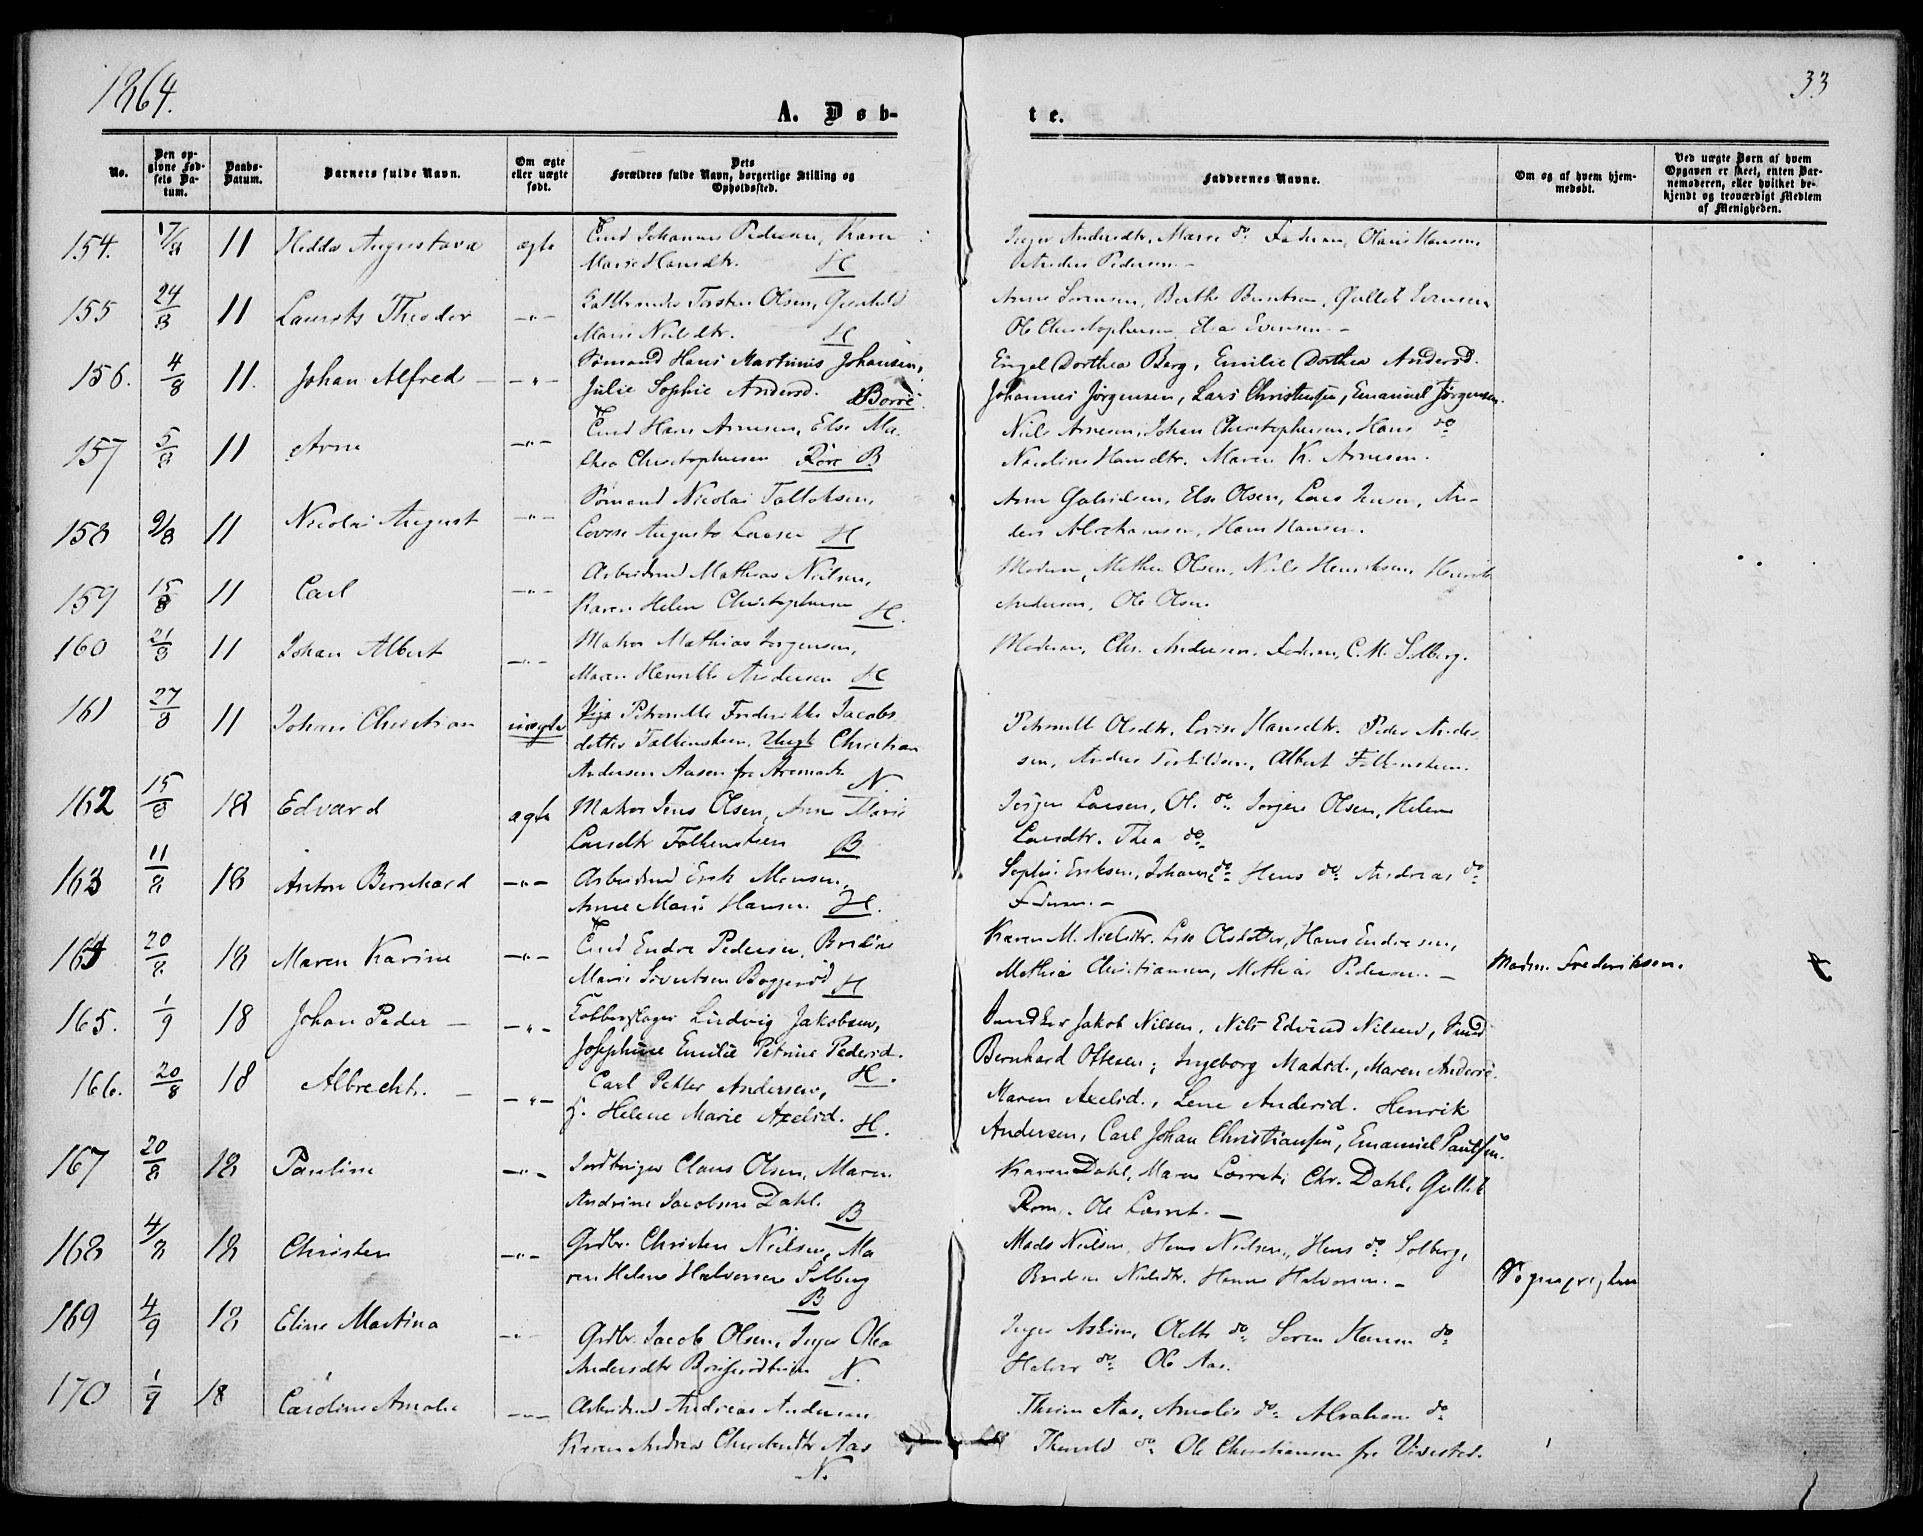 1864.
33
A. Døb-
te.
No.
Den op-
givne Fød-
sels Da-
tum.
Daabs-
Datum.
Barnets fulde Navn.
Om ægte
eller uægte
født.
Dets
Forældres fulde Navn, borgerlige Stilling og
Opholdssted.
Faddernes Navne.
Om og af hvem hjem-
medøbt.
Ved uægte Børn af hvem
Opgaven er skeet, enten Bar-
nemoderen, eller hvilket be-
kjendt og troværdigt Medlem
af Menigheden.
154. 17/8 11 Hedda Augustava ægte Johannes Pedersen, Karen
Marie Hansdtr. H
Inger Andersdtr. Maren do Faderen, Olaves Hansen,
Anders Pedersen. -
155 24/8 11 Laurits Theodor -"- Torsten Olsen,
Marie Nielsdtr. H
Anne Sørensen, Berthe Gullik Evensen
Ole Christophersen Elias Evensen. -
156. 4/8 11. Johan Alfred - -"- Sømand Hans Martinius Johansen,
Julie Sophie Andersd. Borre.
Engel Dorthea Berg, Emilie Dorthea Andersd.
Johannes Jørgensen, Lars Christensen, Emanuel Jørgensen.
157 5/8 11 Arne -"- Hans Arnesen, Else Ma-
thea Christophersen Røre B
Niels Arnesen, Johan Christophersen, Hans do
Nicoline Hansdtr. Maren K. Arnesen.
158 9/8 11 Nicolai August -"- Sømand Nicolai Falleksen,
Lovise Augusta Larsen H
Anne Gabrielsen, Else Olsen, Lars Jensen, An-
ders Abrahamsen, Hans Hansen.
159 15/8 11 Carl -"- Arbeidsmd Mathias Nielsen,
Karen Helene Christophersen H.
Moderen, Mathea Olsen, Niels Henriksen, Henrik
Andersen, Ole Olsen.
160 21/8 11 Johan Albert -"- Matros Mathias Jørgensen,
Maren Henrikke Andersen H
Moderen, Chr. Andersen, Faderen, C. M. Solberg.
161 27/8 11 Johan Christian uægte Pige Petronelle Frederikke Jacobs-
datter Falkensteen. Ungk Christian
Andersen Aasen fra Aremark N.
Petronelle Olsdtr. Lovise Hansdtr. Peder Ander-
sen, Anders Torkildsen, Albert Falkensteen.
162 15/8 18 Edvard ægte Matros Jens Olsen, Anne Marie
Larsdtr Falkensteen B
Jørgen Larsen, O. do Jørgen Olsen, Helene
Larsdtr. Thea do
163 11/8 18 Anton Bernhard -"- Arbeidsmd Erik Monsen,
Anne Marie Hansen. H.
Sophie Eriksen, Johanne do Hans do Andreas do
Faderen. -
164 20/8 18 Maren Karine -"- Endre Pedersen,
Marie Sivertsen H
Karen M. Nielsdtr. Lise Olsdatter, Hans Endresen,
Mathias Christiansen, Mathias Pedersen. -
Madm. Frederiksen.
165. 1/9 18 Johan Peder - -"- Kobberslager Ludvig Jakobsen,
Josephine Emilie Petrine Pedersd. H.
Jakob Nilsen, Nils Edvard Nilsen,
Bernhard Ottesen; Ingeborg Madsd., Maren Anders.
166. 20/8 18 Albrecht. - -"- Carl Petter Andersen,
Helene Marie Axelsd. H.
Maren Axelsd., Lene Andersd. Henrik
Andersen, Carl Johan Christiansen, Emanuel Paulsen.
167 20/8 18 Pauline -"- Jordbruger Claus Olsen, Maren
Andrine Jacobsen Dahl. B
Karen Dahl, Maren Chr. Dahl, Gullik
Rom, Ole
168 4/8 18 Christen -"- Grdbr. Christen Nielsen, Ma-
ren Helene Halvorsen Solberg
B
Mads Nielsen, Hans Nielsen, Hans do Solberg,
Nielsdtr. Hanne Halvorsen. -
Sognepresten
169 4/9 18 Eline Martina -"- Grdbr. Jacob Olsen, Inger Olea
Andersdtr N.
Inger Askim, do Søren Hansen do
Halvor do Ole Aas.
170 1/9 18 Caroline Amalie -"- Arbeidsmd Andreas Andersen
Karen Andrea Aas
N.
Aas, Amalie do Abraham do
Thorvald do Ole Christiansen fra Vivestad.